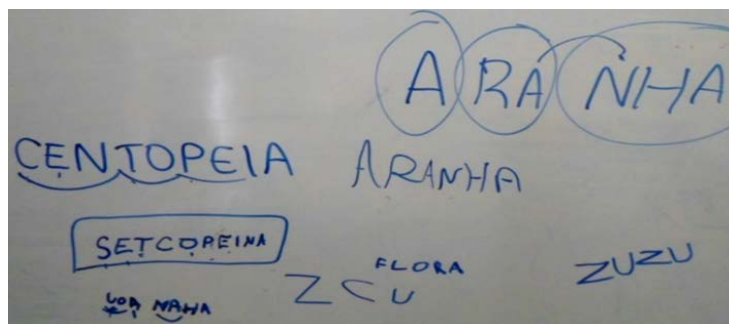 ARANHA
CENTOPEIA ARANHA
SETCOPEINA
FLORA
ZCU
ZUZU
NAHA